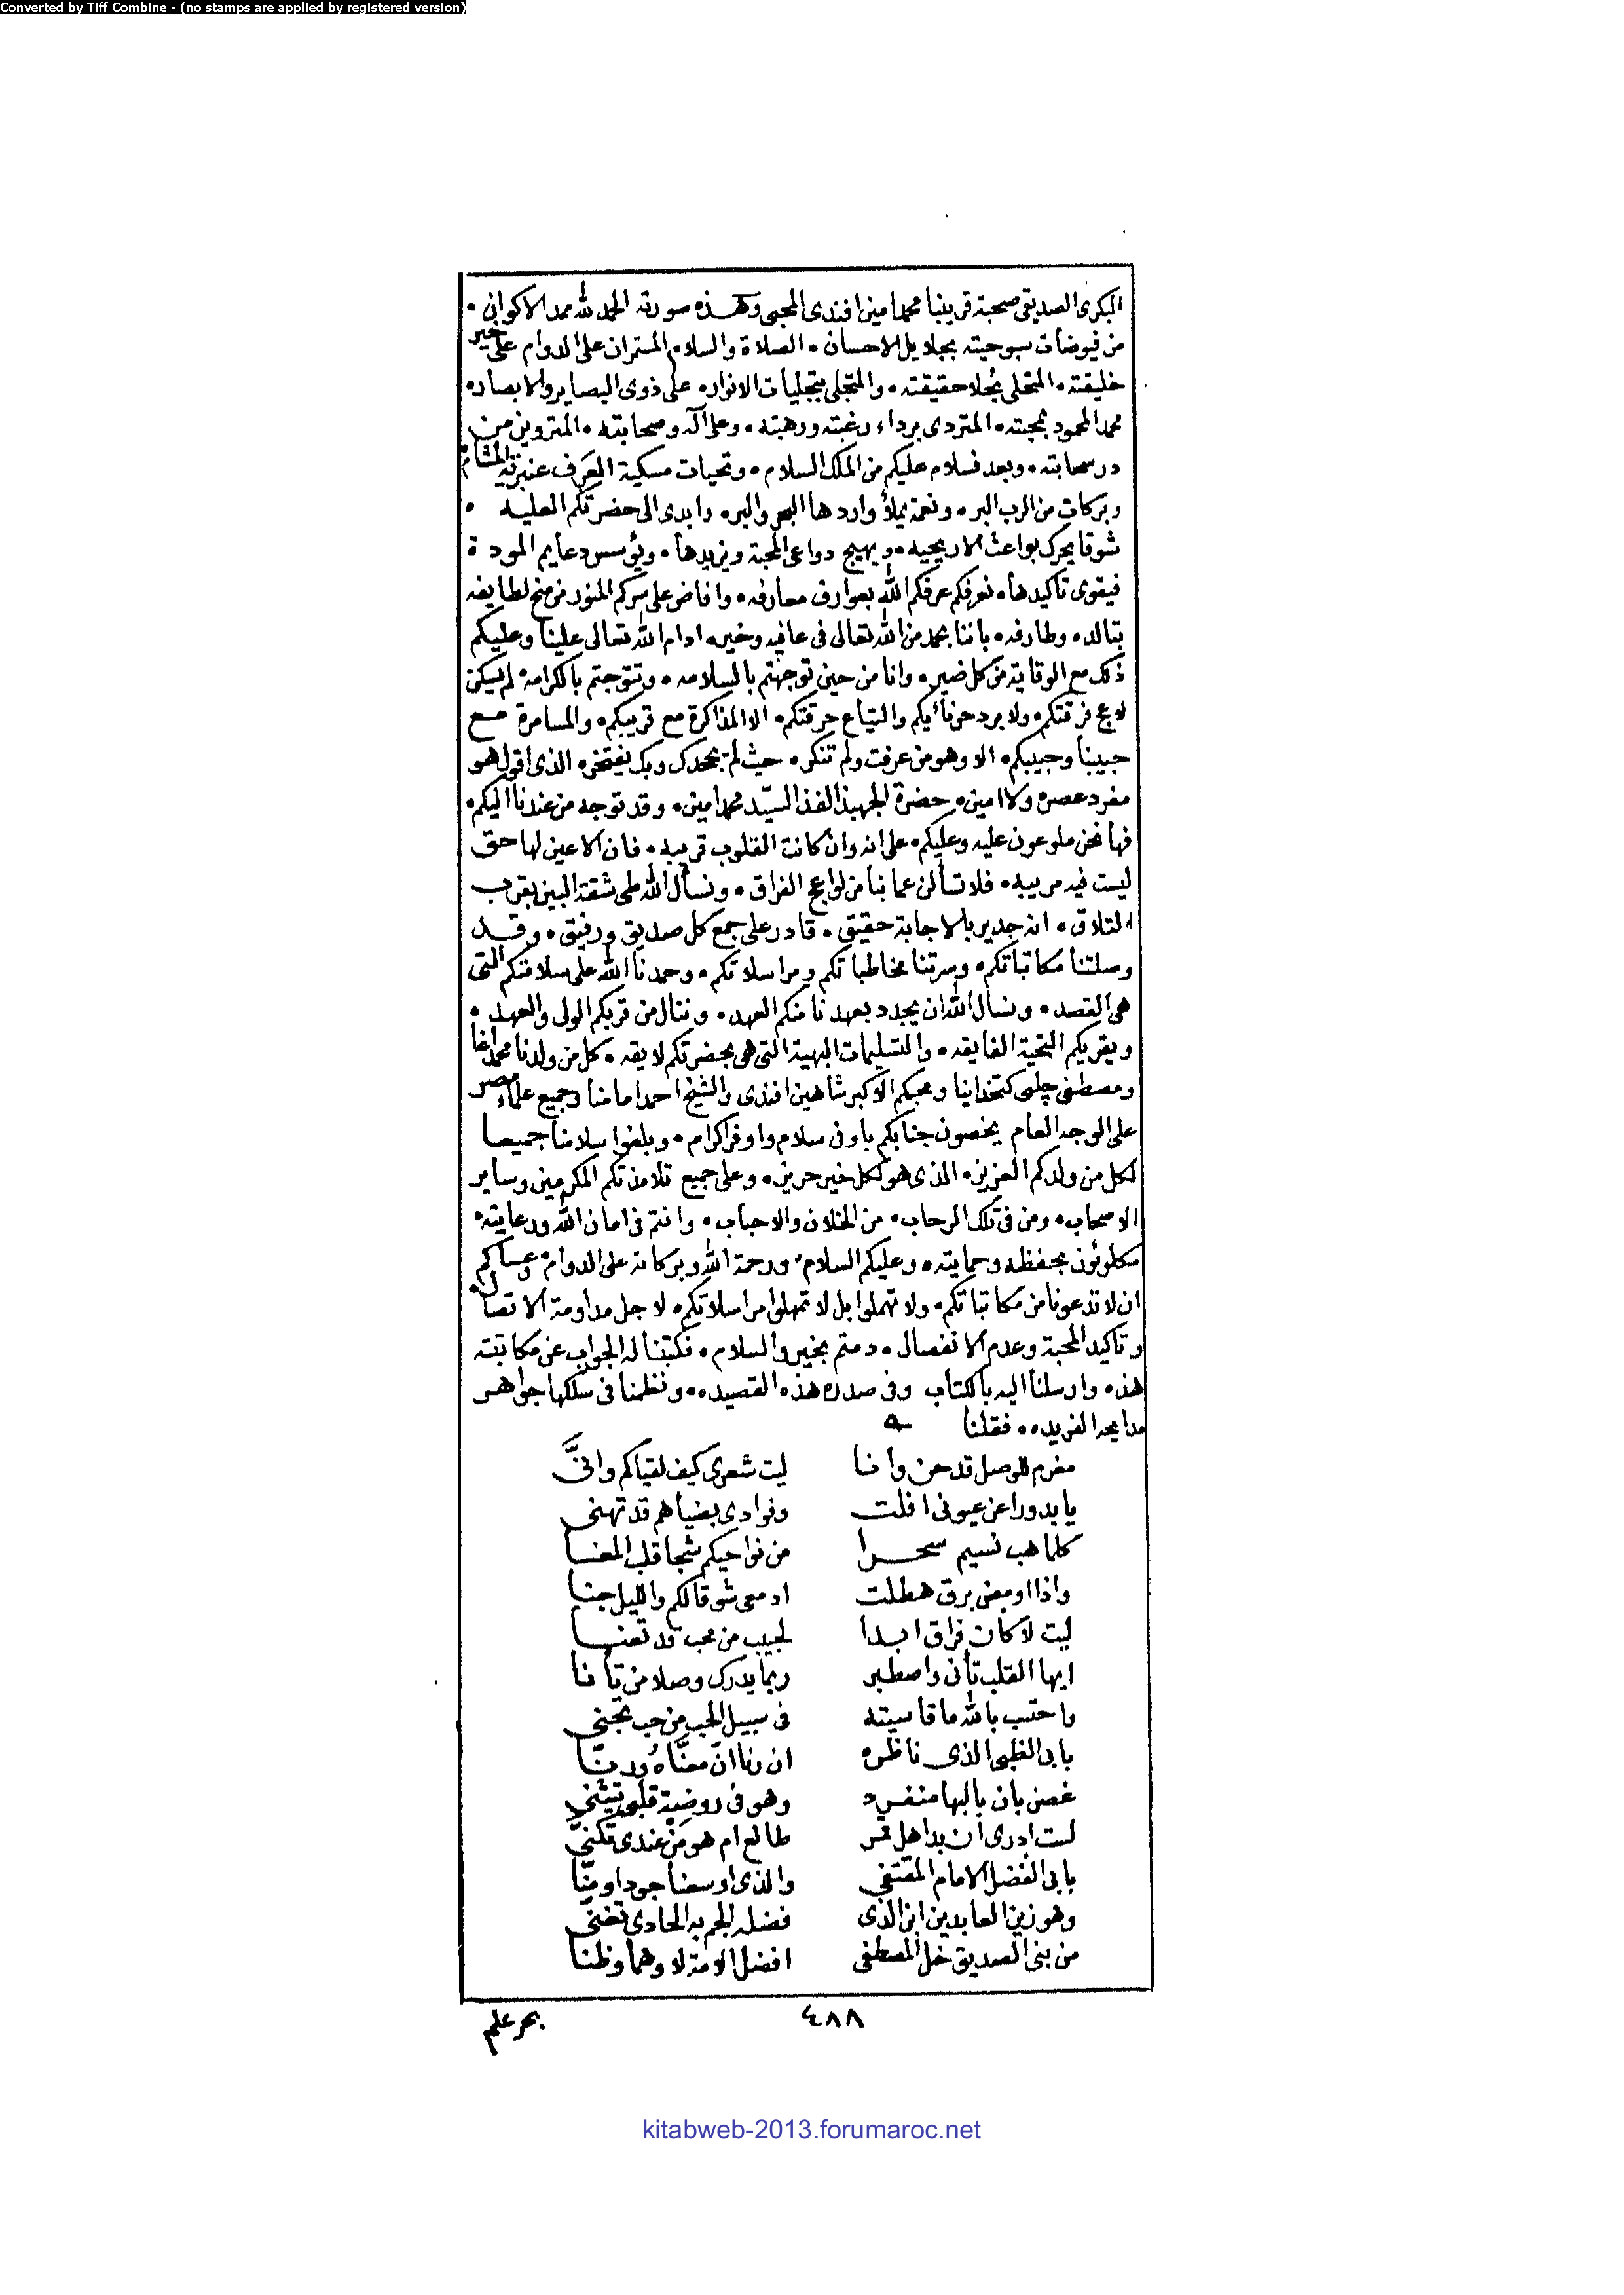 Converted by Tiff Combine - (no stamps are applied by registered version)
البكرى الصديقى صحبة قريبنا محمد امين افندى المحبى وهذه صورته الحمد لله ممد الاكوان •
من فيوضات سبوحيته بجلايل الاحسان • الصلاة والسلام المستمران على الدوام على خير
خليقته • المتحلى بحلا حقيقته • والمتجلى بتجليات الانوار • على ذوى البصاير والابصار •
محمد المحمود بمحبته • المتردى برداء رغبته ورهبته • وعلى آله وصحابته • المتروين من
در سحابته • وبعد فسلام عليكم من الملك السلام • وتحيات مسكية العَرف عنبرية المشام
وبركات من الرب البر • ونعمة يملأ واردها البحر والبر • وابدى الى حضرتكم العليه •
شوقا يحرك بواعث الاريحيه • ويهيج دواعى المحبة ويزيدها • ويؤسس دعايم المودة
فيقوى تاكيدها • نعرفكم عرفكم الله بعوارف معارفه • وافاض على سركم المنور من منح لطايفه
بتالده وطارفه • باننا بحمد من الله تعالى فى عافيه وخير • ادام الله تعالى علينا وعليكم
ذلك مع الوقاية من كل ضير • وانا من حين توجهتم بالسلامه • وتتوجتم بالكرامة • لم يسكن
لاعج فرقتكم • ولا برد حر نأيكم والتياع حرقتكم • الا المذاكرة مع قريبكم • والمسامرة مع
حبيبنا وحبيبكم • الا وهو من عرفت ولم تنكر • حيث لم بحمدك وبك يفتخر • الذى اقول هو
مفرد عصره ولا امين • حضرة الجهبذ الفذ السيّد محمد امين • وقد توجه من عندنا اليكم •
فها نحن ملوعون عليه وعليكم • على انه وان كانت القلوب قريبه • فان الاعين لها حق
ليست فيه مريبه • فلا تسألن عما بنا من لواعج الفراق • ونسأل الله طى شقة البين بقرب
التلاق • انه جدير بالاجابة حقيق • قادر على جمع كل صديق ورفيق • وقد
وصلتنا مكاتباتكم • وسرتنا مخاطباتكم ومراسلاتكم • وحمدنا الله على سلامتكم التى
هى القصد • ونسال الله ان يجدد بعهدنا منكم العهد • وننال من قربكم الولى والعهد •
ويقريكم التحية الفايقه • والتسليمات البهية التى هى بحضرتكم لايقه • كل من ولدنا محمد اغا
ومصطفى چلبى كتخداينا ومحبكم الاكبر شاهين افندى والشيخ احمد امامنا وجميع علماء مصر
على الوجه العام يخصون جنابكم باوفى سلام واوفر اكرام • وبلغوا سلامنا جميعا
لكل من ولدكم العزيز • الذى هو لكل خير حريز • وعلى جميع تلامذتكم المكرمين وساير
الاصحاب • ومن فى تلك الرحاب • من الخلان والاحباب • وانتم فى امان الله ورعايته •
مكلوئون بحفظه وحمايته • وعليكم السلام • ورحمة الله وبركاته على الدوام • وعساكم
ان لا تدعونا من مكاتباتكم • ولا تهملوا بل لا تمهلوا مراسلاتكم • لاجل مداومة الاتصال •
وتاكيد المحبة وعدم الانفصال • دمتم بخير والسلام • فكتبنا له الجواب عن مكاتبته
هذه • وارسلنا اليه بالكتاب وفى صدره هذه القصيده • ونظمنا فى سلكها جواهر
مدايحه الفريده • فقلنا
مغرم للوصل قد حن وانا ليت شعرى كيف لقياكم وانَّى
يا بدورا عن عيونى افلت وفوادى بضياهم قد تهنى
كلما هب نسيم سحرا من نواحيكم شجا قلب المعنا
واذا اومض برق هطلت ادمعى شوقا لكم والليل جنا
ليت لا كان فراق ابدا لحبيب من محب قد تعنا
ايها القلب تأنى واصطبر ربما يدرك وصلا من تأنا
واحتسب بالله ما قاسيته فى سبيل الحب من حب تجنى
بابى الظبى الذى ناظره ان رنا انّ معنَّاهُ ورنّا
غصن بان بالبها منفرد وهو فى روضة قلبى يتثنى
لست ادرى ان بدا هل قمر طالع ام هو من عندى تكنىّ
بابى الفضل الامام المقتفى والذى اوسعنا جودا ومنّا
وهو زين العابدين ابن الذى فضله الجم به الحادى تغنى
من بنى الصديق خل المصطفى افضل الامة لا وهما وظنا
٤٨٨
بحر علم
kitabweb-2013.forumaroc.net